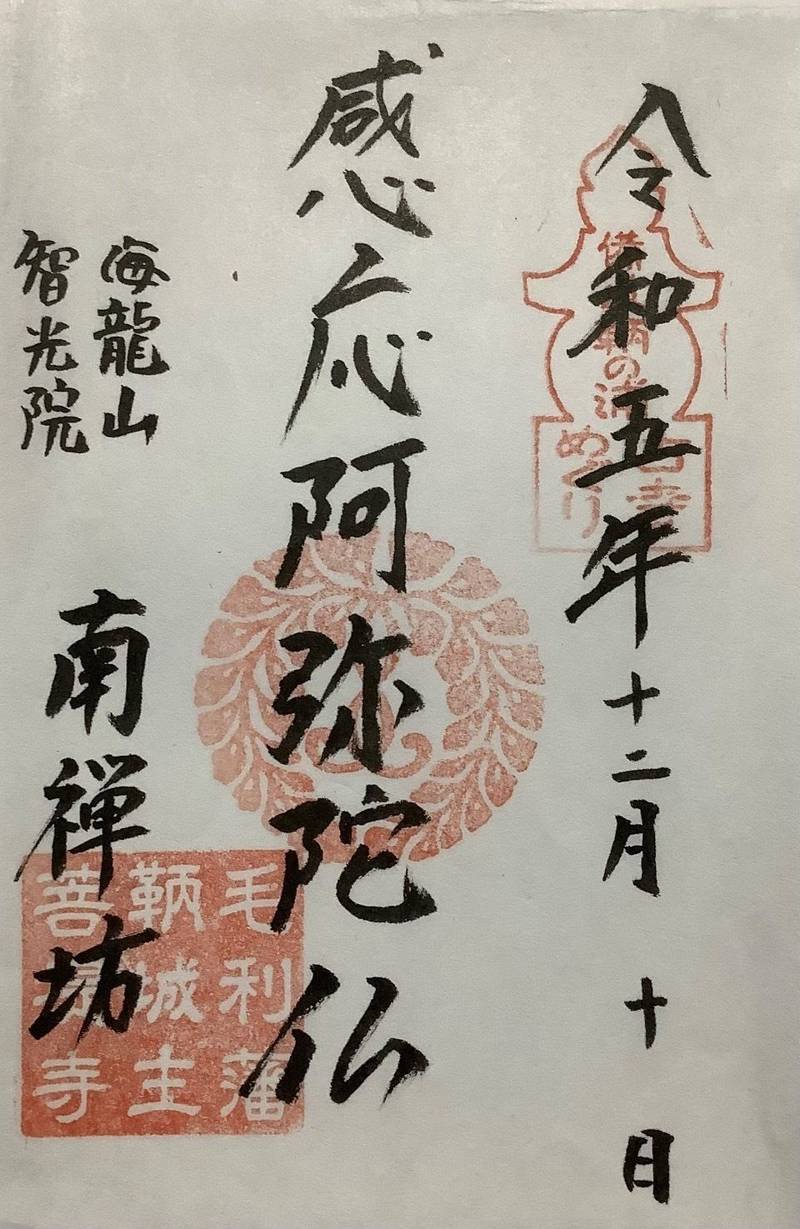 令和五年十二月十日
の浦
めぐり
感応阿弥陀仏
海龍山
智光院
南禅坊
毛利藩
鞆城主
菩提寺